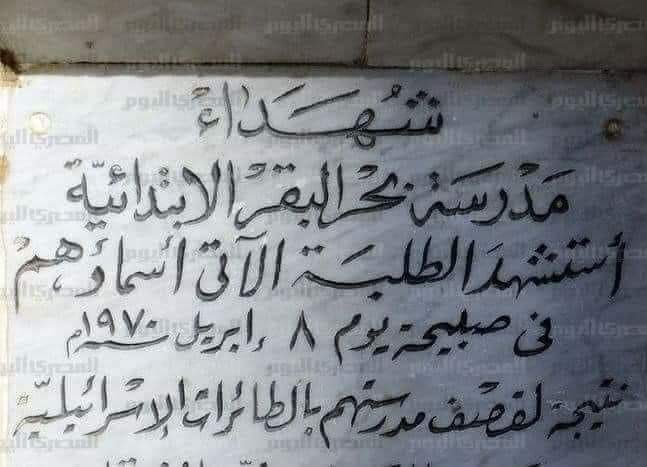 شهداء
مدرسة بحر البقر الابتدائية
أستشهد الطلبة الآتى أسماؤهم
فى صبيحة يوم ٨ ابريل سنة ١٩٧٠م
نتيجة لقصف مدرستهم بالطائرات الإسرائيلية
المصرى اليوم